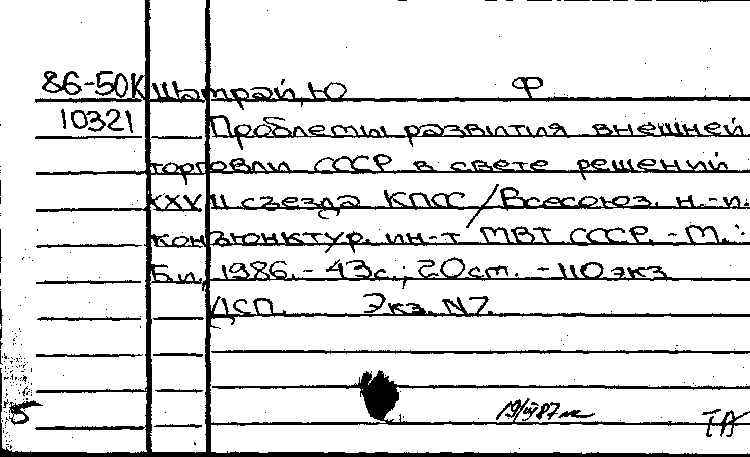 86-50К Шатрай, Ю Ф
10321 Проблемы развития внешней
торговли СССР в свете решений
XXVII съезда КПСС / Всесоюз. н.-и.
конъюнктур. ин-т МВТ СССР. - М.:
Б.и., 1986. - 43с.; 20см. - 110 экз
ДСП. Экз. N7.
5